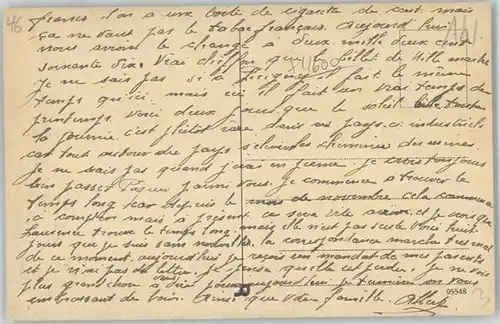 46
francs l'on a une boite de cigarette de cent mais
ça ne vaut pas le tabac français. Aujourd'hui
nous avons le change à deux mille deux cent
soixante dix. Vrai chiffon que le billet de Mille marks
Je ne sais pas si à il fait le même
temps qu'ici mais ici il fait un vrai temps de
printemps. Voici deux jours que le soleil
la journée c'est plutôt rare dans ce pays-ci industriels
car tout autour du pays s'élèvent les cheminées des usines.
Je ne sais pas quand j'irai en perme. Je crois toujours
bien passer Pâques parmi vous. Je commence à trouver le
temps long car depuis le mois de novembre cela commence
à compter mais à présent ce sera vite et je crois que
Laurence trouve le temps long mais elle n'est pas seule Voici huit
jours que je suis sans nouvelle. la correspondance marche très mal
de ce moment. aujourd'hui je reçois un mandat de mes parents
et je n'ai pas de lettre. je pense qu'elle est perdue. Je ne vois
plus grand chose à dire pour aujourd'hui je termine en vous
embrassant de loin. Ainsi que votre famille. Albert
95548